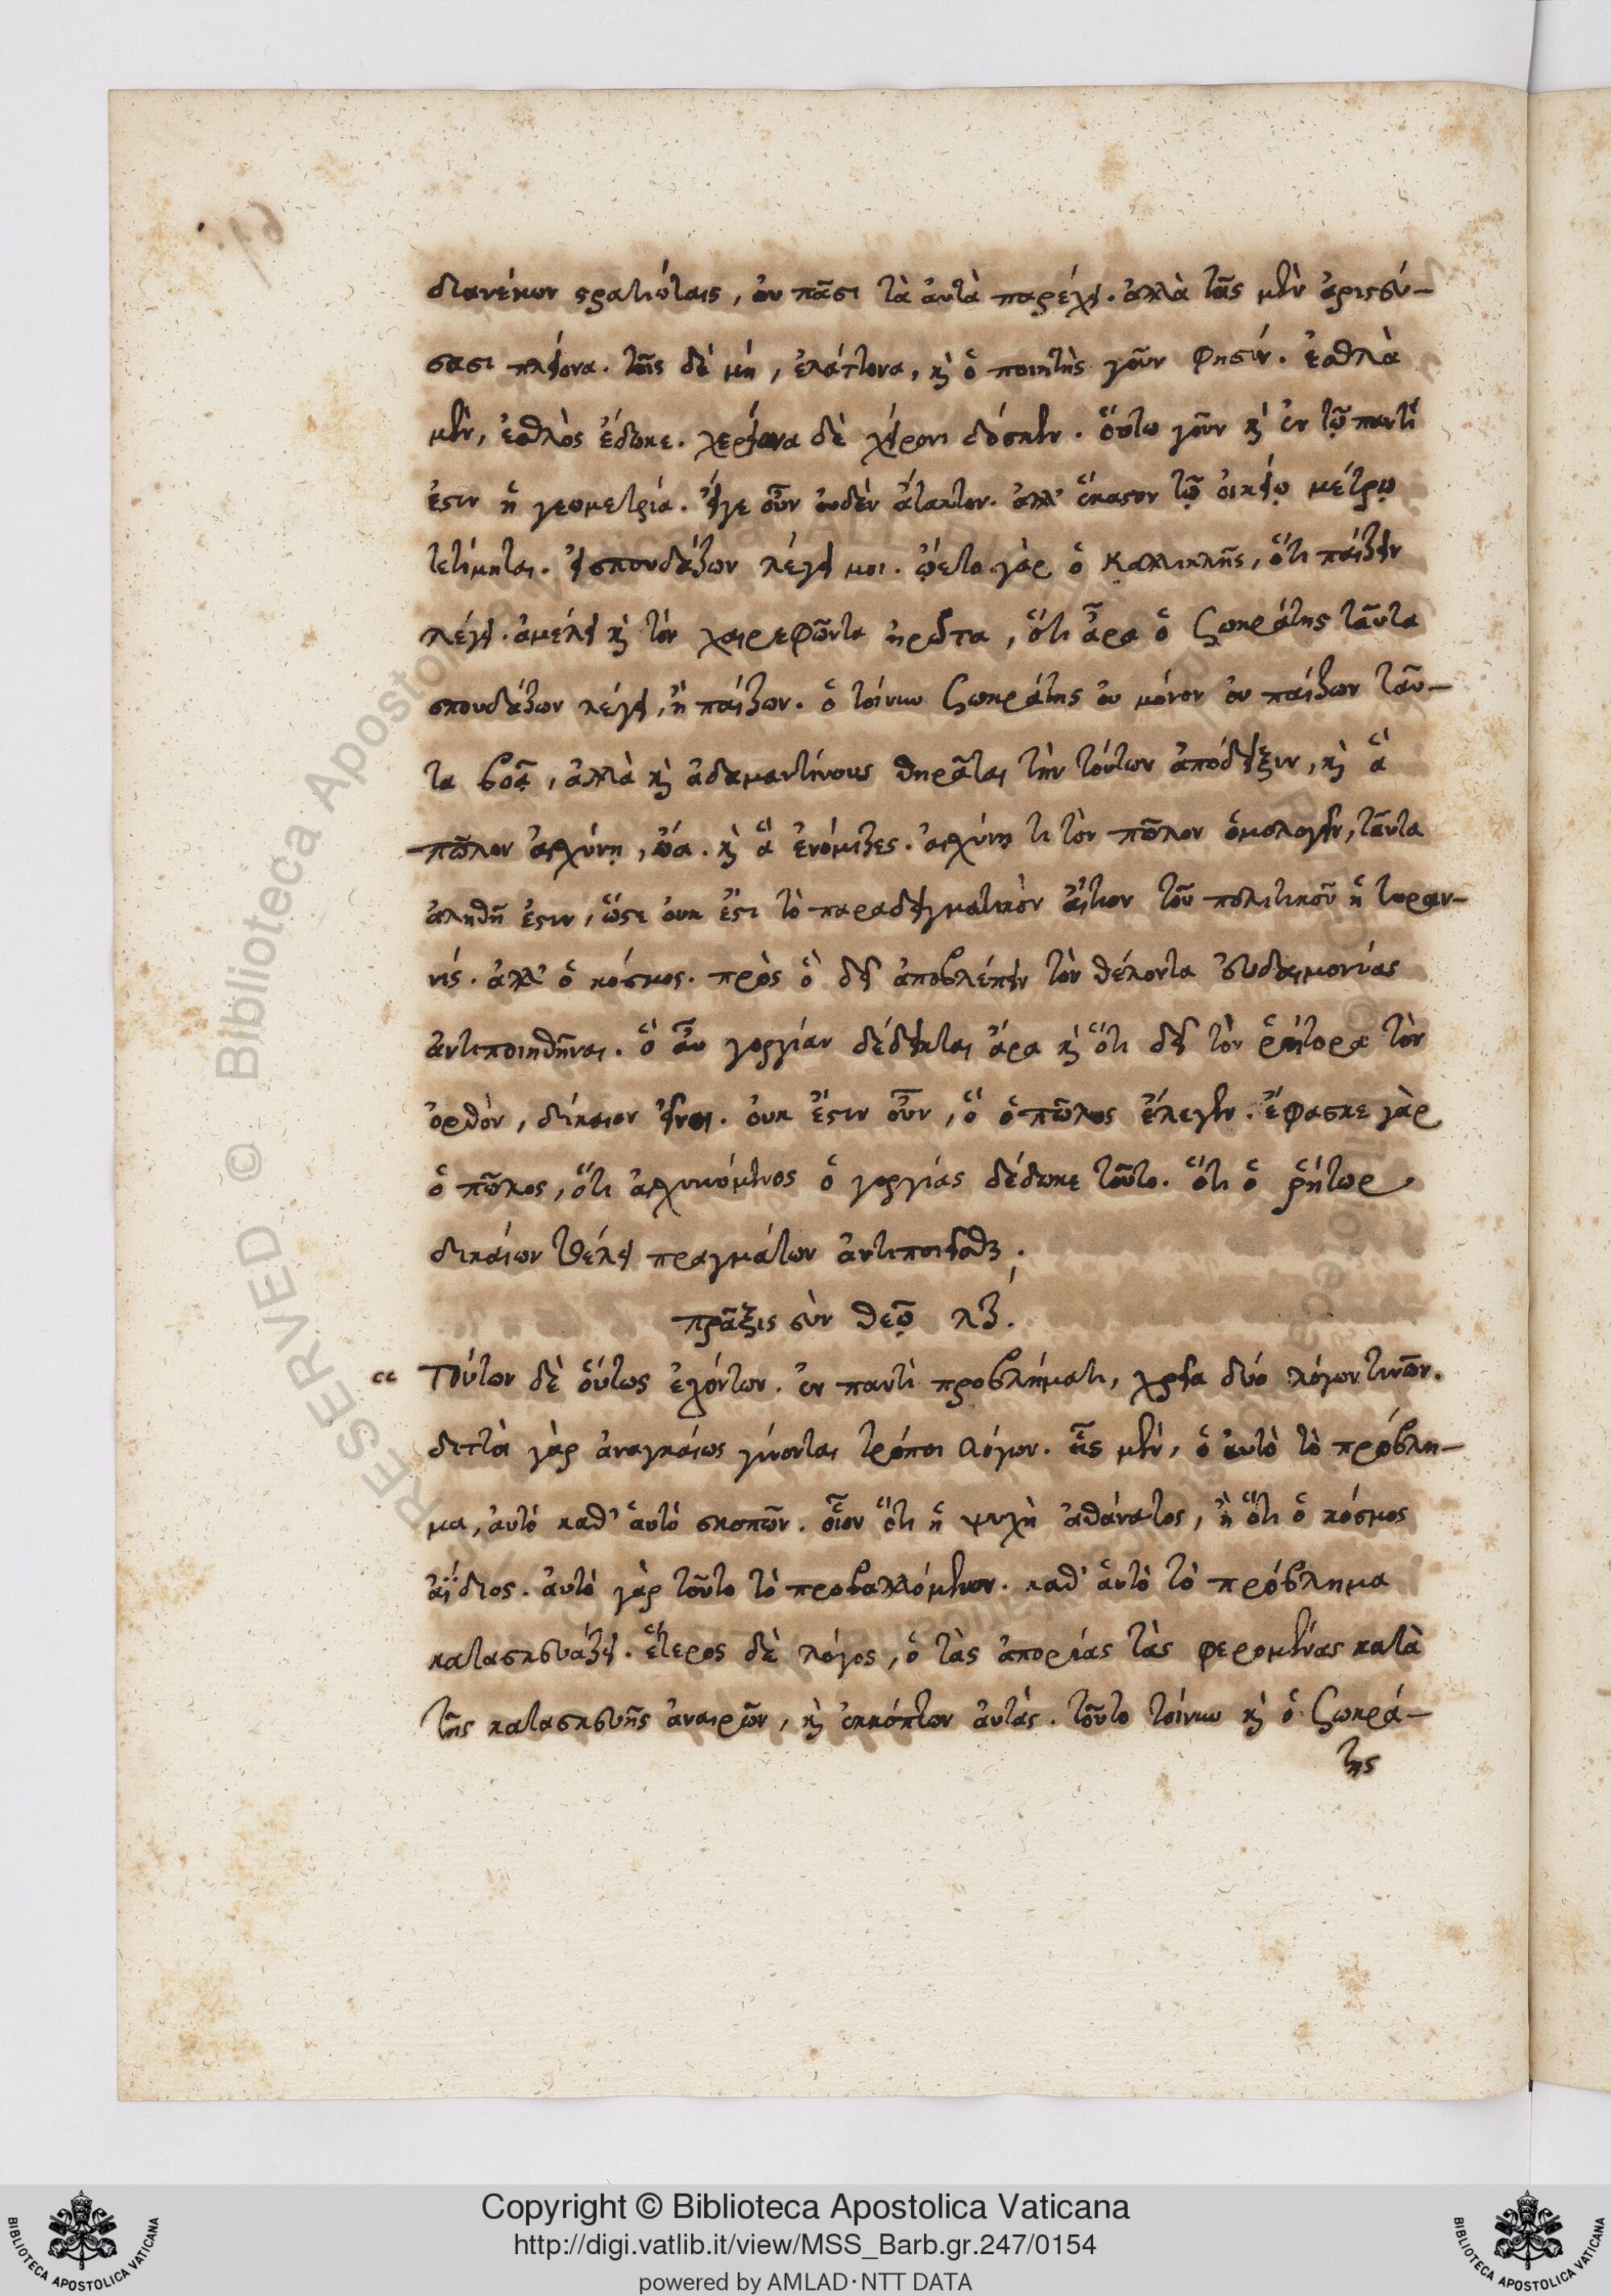 διανέμων στρατιώταις, ὀυ πᾶσι τὰ ἀυτὰ παρέχει. ἀλλὰ τοῖς μὲν ἀριστεύ-
σασι πλείονα. τοῖς δὲ μὴ, ἐλάττονα, καὶ ὁ ποιητὴς γοῦν φησίν. ἐσθλὰ
μὲν, ἐσθλὸς ἔδωκε. χερείονα δὲ χείρονι δόσκεν. ὅυτω γοῦν καὶ ἐν τῷ παντί
ἐστιν ἡ γεωμετρία. εἴγε οὖν ὀυδὲν ἄτακτον. ἀλλ' ἕκαστον τῷ ὀικείῳ μέτρῳ
τετίμηται. εἰ σπουδάζων λέγει μοι. ᾤετο γὰρ ὁ Καλλικλῆς, ὅτι παίζειν
λέγει. ἀμέλει καὶ τὸν χαιρεφῶντα ἠρώτα, ὅτι ἆρα ὁ Σωκράτης ταῦτα
σπουδάζων λέγει, ἢ παίζων. ὁ τοίνυν Σωκράτης ὀυ μόνον ὀυ παίζων ταῦ-
τα βοᾷ, ἀλλὰ καὶ ἀδαμαντίνους θηρᾶται τὴν τούτων ἀπόδειξιν, καὶ ἃ
πῶλον ἀισχύνῃ, ὠά. καὶ ἃ ἐνόμιζες. ἀισχύνῃ τι τὸν πῶλον ὁμολογεῖν, ταῦτα
ἀληθῆ ἐστιν, ὥστε ὀυκ ἔστι τὸ παραδειγματικὸν ἄιτιον τοῦ πολιτικοῦ ἡ τυραν-
νίς. ἀλλ' ὁ κόσμος. πρὸς ὃ δεῖ ἀποβλέπειν τὸν θέλοντα ἐυδαιμονίας
ἀντιποιηθῆναι. ὃ ἆυ γοργίαν δέδεικται ἄρα καὶ ὅτι δεῖ τὸν ῥήτορα τὸν
ὀρθὸν, δίκαιον εἶναι. ὀυκ ἔστιν οὖν, ὃ ὁ πῶλος ἔλεγεν. ἔφασκε γὰρ
ὁ πῶλος, ὅτι ἀισχυνόμενος ὁ γοργίας δέδωκε τοῦτο. ὅτι ὁ ῥήτωρ
δικαίων θέλει πραγμάτων ἀντιποιεῖσθαι.
πρᾶξις σὺν θεῷ λζʹ.
Τούτων δὲ ὅυτως ἐχόντων. ἐν παντὶ προβλήματι, χρεία δύο λόγων τινῶν.
διττοὶ γὰρ ἀναγκαίως γίνονται τρόποι λόγων. εἷς μὲν, ὁ ἀυτὸ τὸ πρόβλη-
μα, ἀυτὸ καθ' ἁυτὸ σκοπῶν. οἷον ὅτι ἡ ψυχὴ ἀθάνατος, ἢ ὅτι ὁ κόσμος
ἀΐδιος. ἀυτὸ γὰρ τοῦτο τὸ προβαλλόμενον. καθ' ἁυτὸ τὸ πρόβλημα
κατασκευάζει. ἕτερος δὲ λόγος, ὁ τὰς ἀπορίας τὰς φερομένας κατὰ
τῆς κατασκευῆς ἀναιρῶν, καὶ ἐκκόπτων ἀυτάς. τοῦτο τοίνυν καὶ ὁ Σωκρά-
της
Copyright © Biblioteca Apostolica Vaticana
http://digi.vatlib.it/view/MSS_Barb.gr.247/0154
powered by AMLAD·NTT DATA